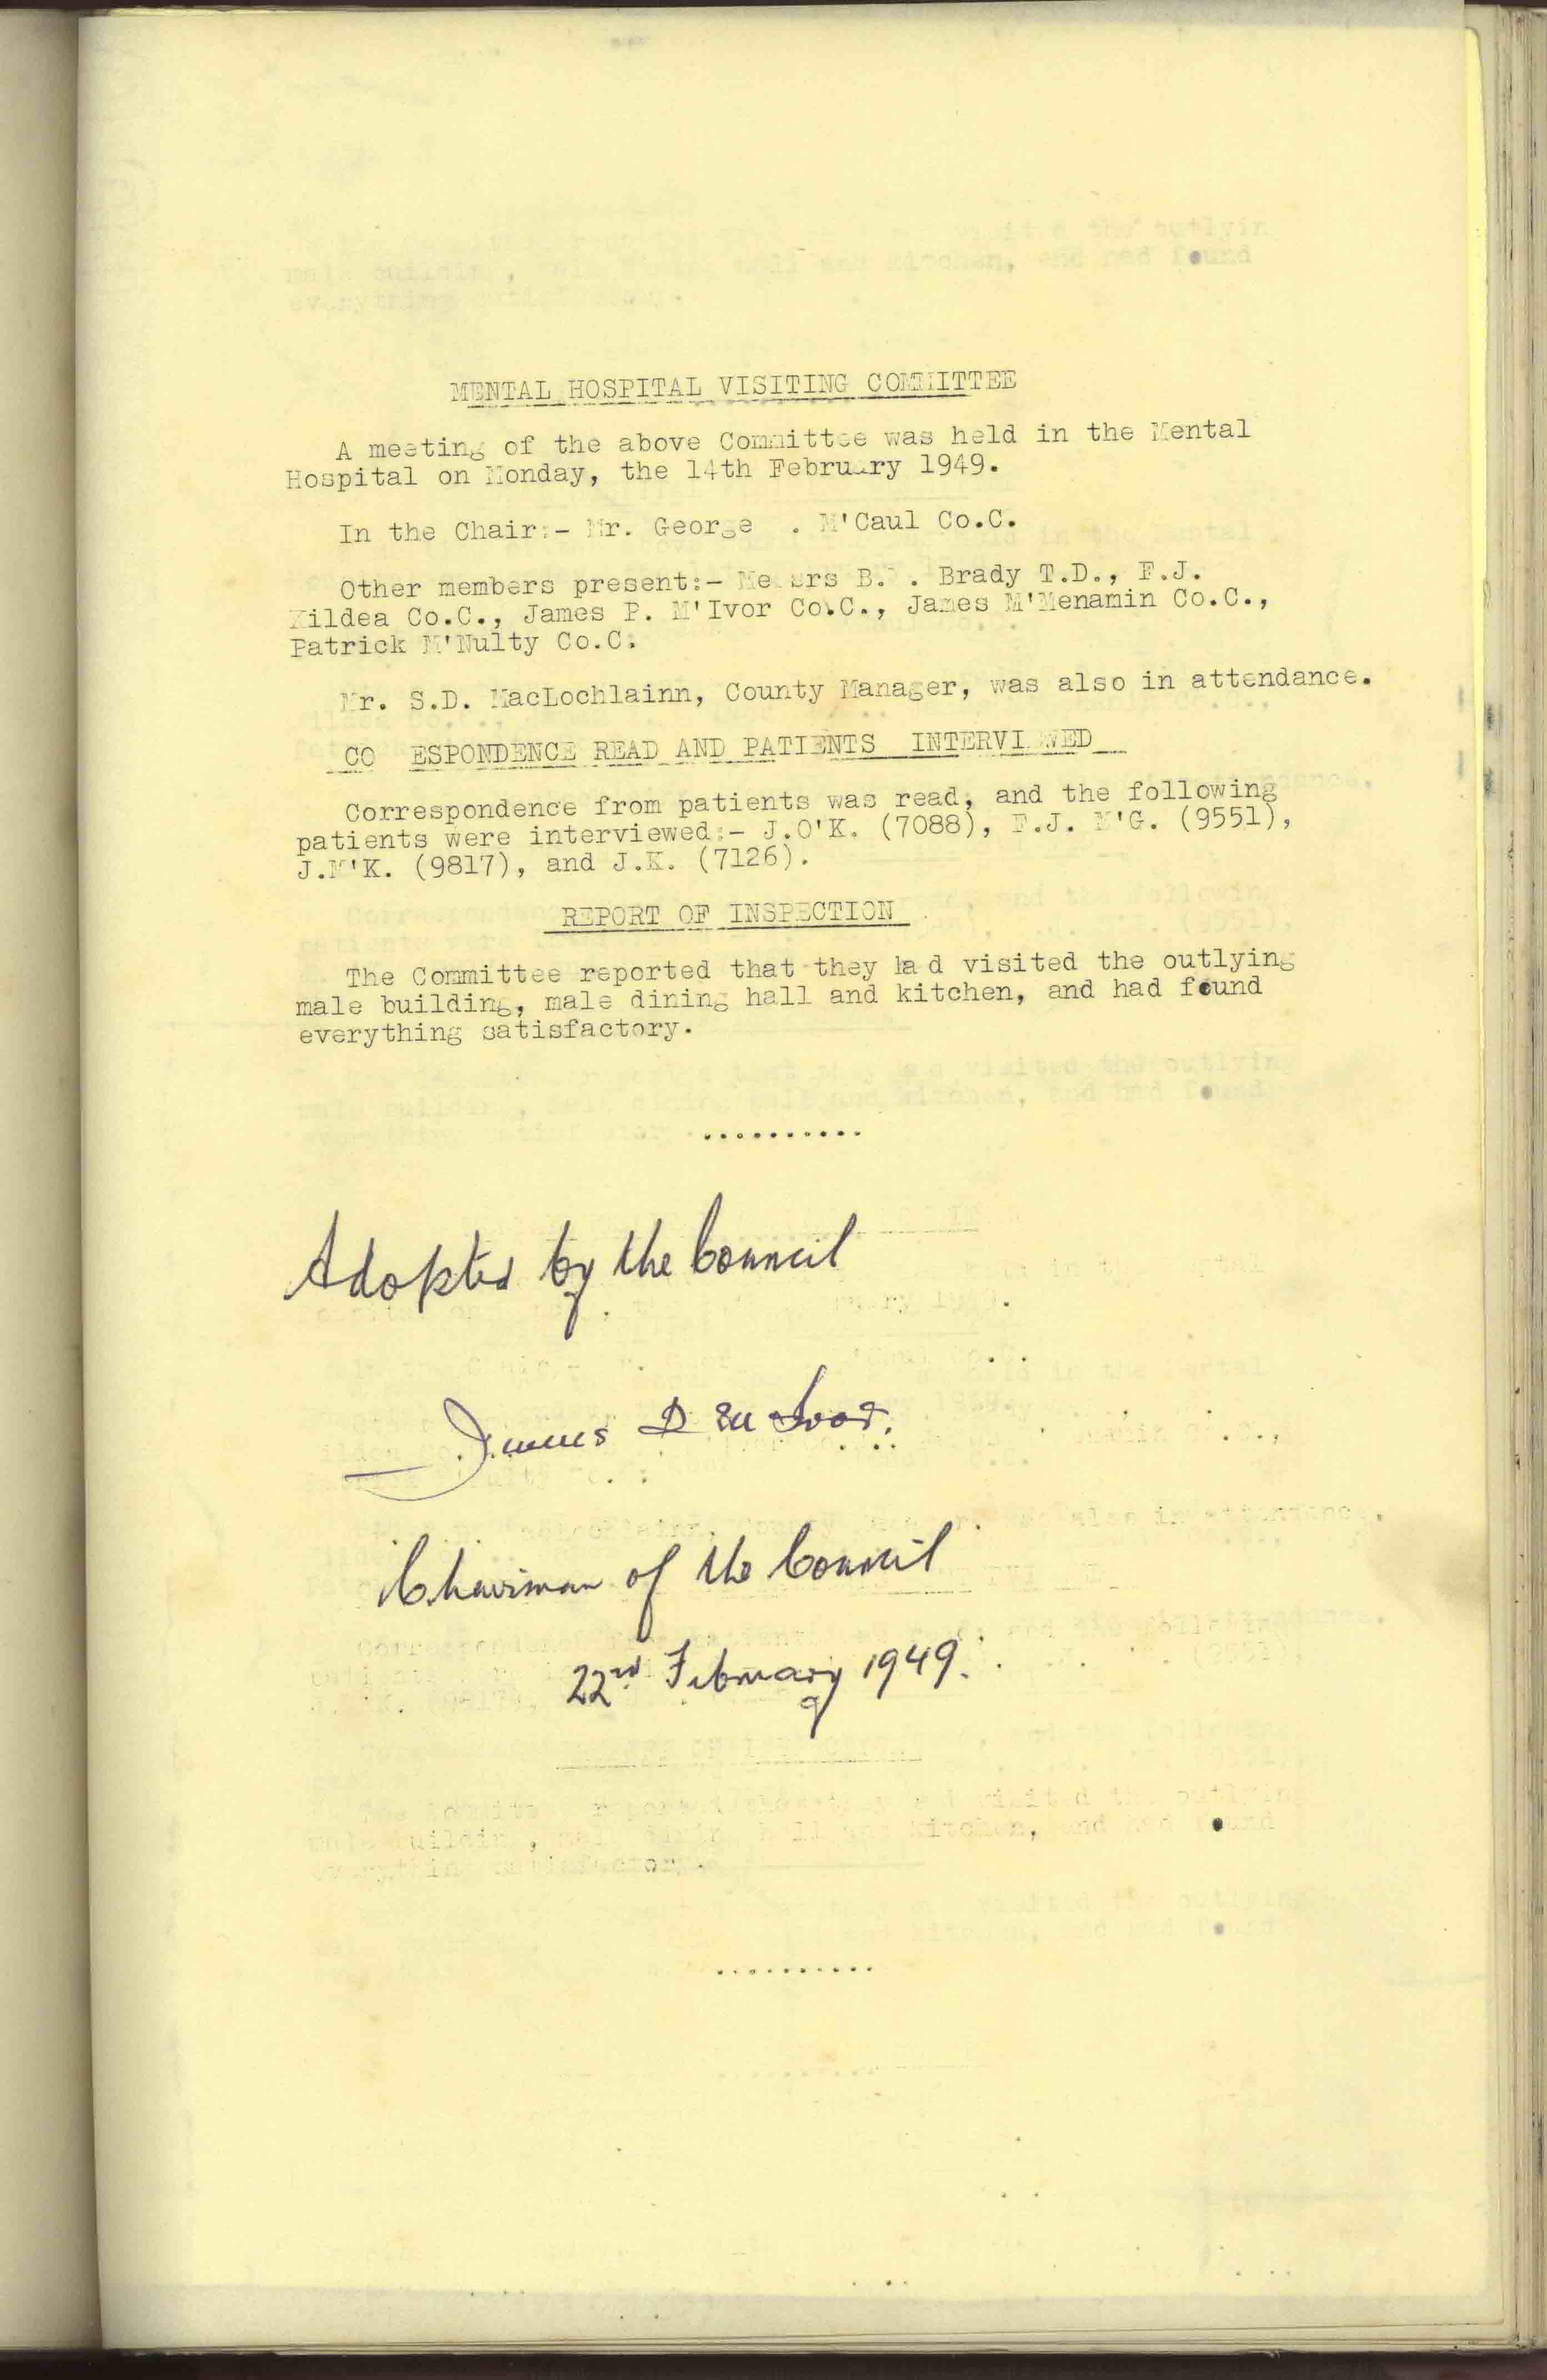 MENTAL HOSPITAL VISITING COMMITTEE
A meeting of the above Committee was held in the Mental
Hospital on Monday, the 14th February 1949.
In the Chair:- Mr. George . M'Caul Co.C.
Other members present:- Messrs B. . Brady T.D., F.J.
Kildea Co.C., James P. M'Ivor Co.C., James M'Menamin Co.C.,
Patrick M'Nulty Co.C.
Mr. S.D. MacLochlainn, County Manager, was also in attendance.
CO ESPONDENCE READ AND PATIENTS INTERVI WED
Correspondence from patients was read, and the following
patients were interviewed:- J.O'K. (7088), F.J. M'G. (9551),
J.M'K. (9817), and J.K. (7126).
REPORT OF INSPECTION
The Committee reported that they had visited the outlying
male building, male dining hall and kitchen, and had found
everything satisfactory.
..........
Adopted by the Council
James P McIvor.
Chairman of the Council
22nd February 1949.
..........